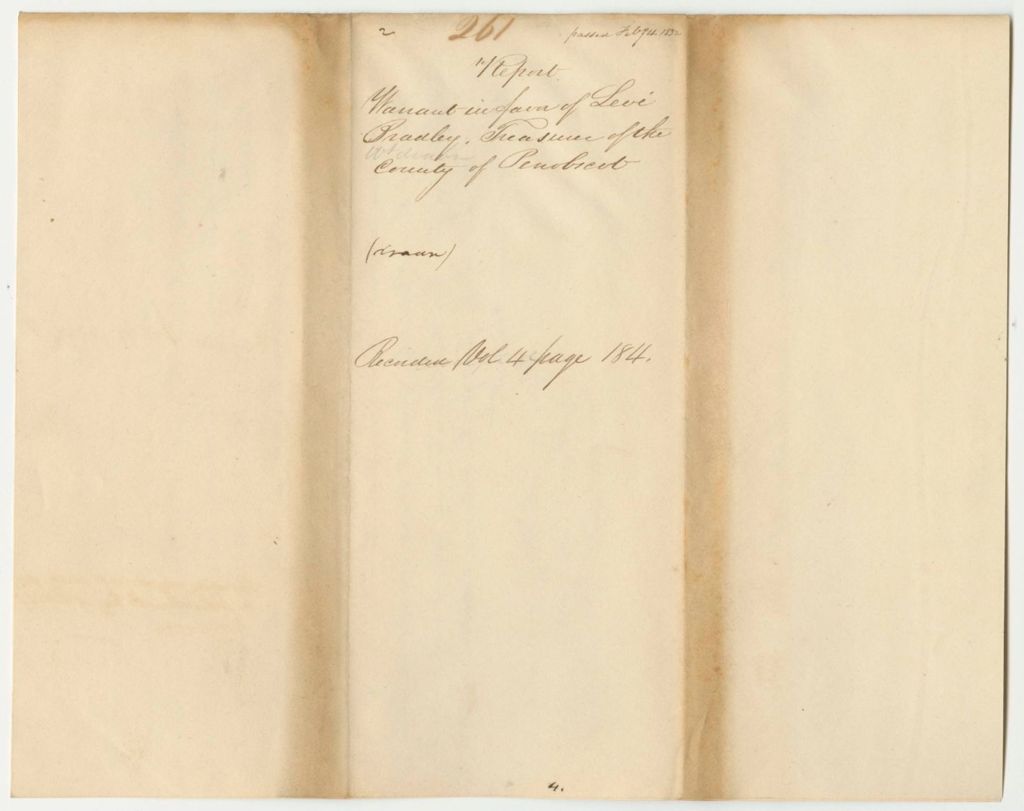 2 261 passed Feby 4. 1832
Report
Warrant in favor of Levi
Bradley, Treasurer of the
County of Penobscot
Recorded Vol 4 page 184.
4.